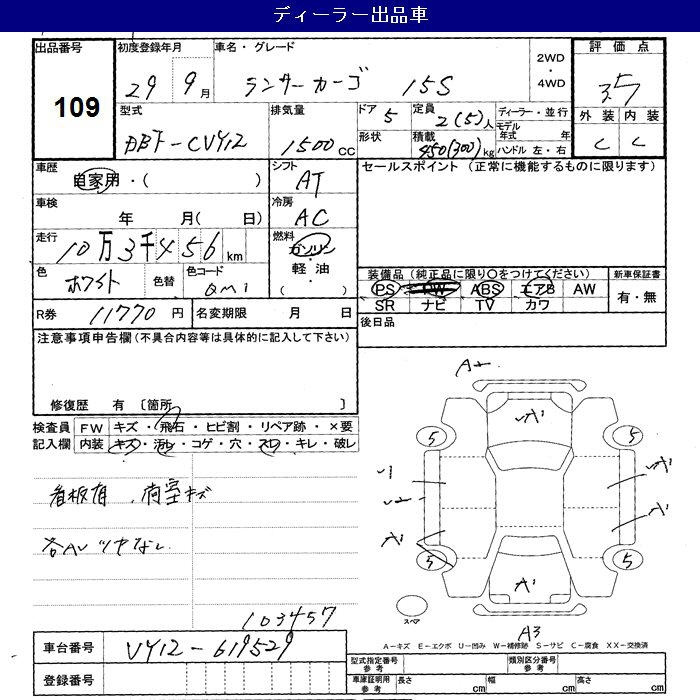 ディーラー出品車
出品番号 初度登録年月 車名・グレード 2WD ・ 4WD 評価点
109 29年 9月 ランサーカーゴ 15S 3.5
外装 内装
C C
型式 排気量 ドア 定員 ディーラー・並行
DBF-CVY12 1500cc 5 2(5)人 モデル年式 年
形状 積載 450(300)kg ハンドル 左・右
車歴 シフト セールスポイント (正常に機能するものに限ります)
自家用・( ) AT
車検 冷房
年 月( 日) AC
走行 燃料
10万3千456km ガソリン・軽油 ( )
色 ホワイト 色替 色コード QM1
装備品 (純正品に限り〇をつけてください) 新車保証書
PS PW ABS エアB AW 有・無
SR ナビ TV カワ
R券 11770円 名変期限 月 日 後日品
注意事項申告欄 (不具合内容等は具体的に記入して下さい)
修復歴 有 〔箇所 〕
検査員 FW キズ・飛石・ヒビ割・リペア跡・×要
記入欄 内装 キズ・汚レ・コゲ・穴・スレ・キレ・破レ
看板有 . 荷室キズ
各AVツヤなし
A2
A1
5 5
U1 A1
U2 A1
A1
5 5
A1
スペア
A3
103457
A-キズ E-エクボ U-凹み W-補修跡 S-サビ C-腐食 XX-交換済
車台番号 VY12-619529
型式指定番号 参考 類別区分番号 参考
登録番号
車庫証明用 参考 長さ cm 幅 cm 高さ cm